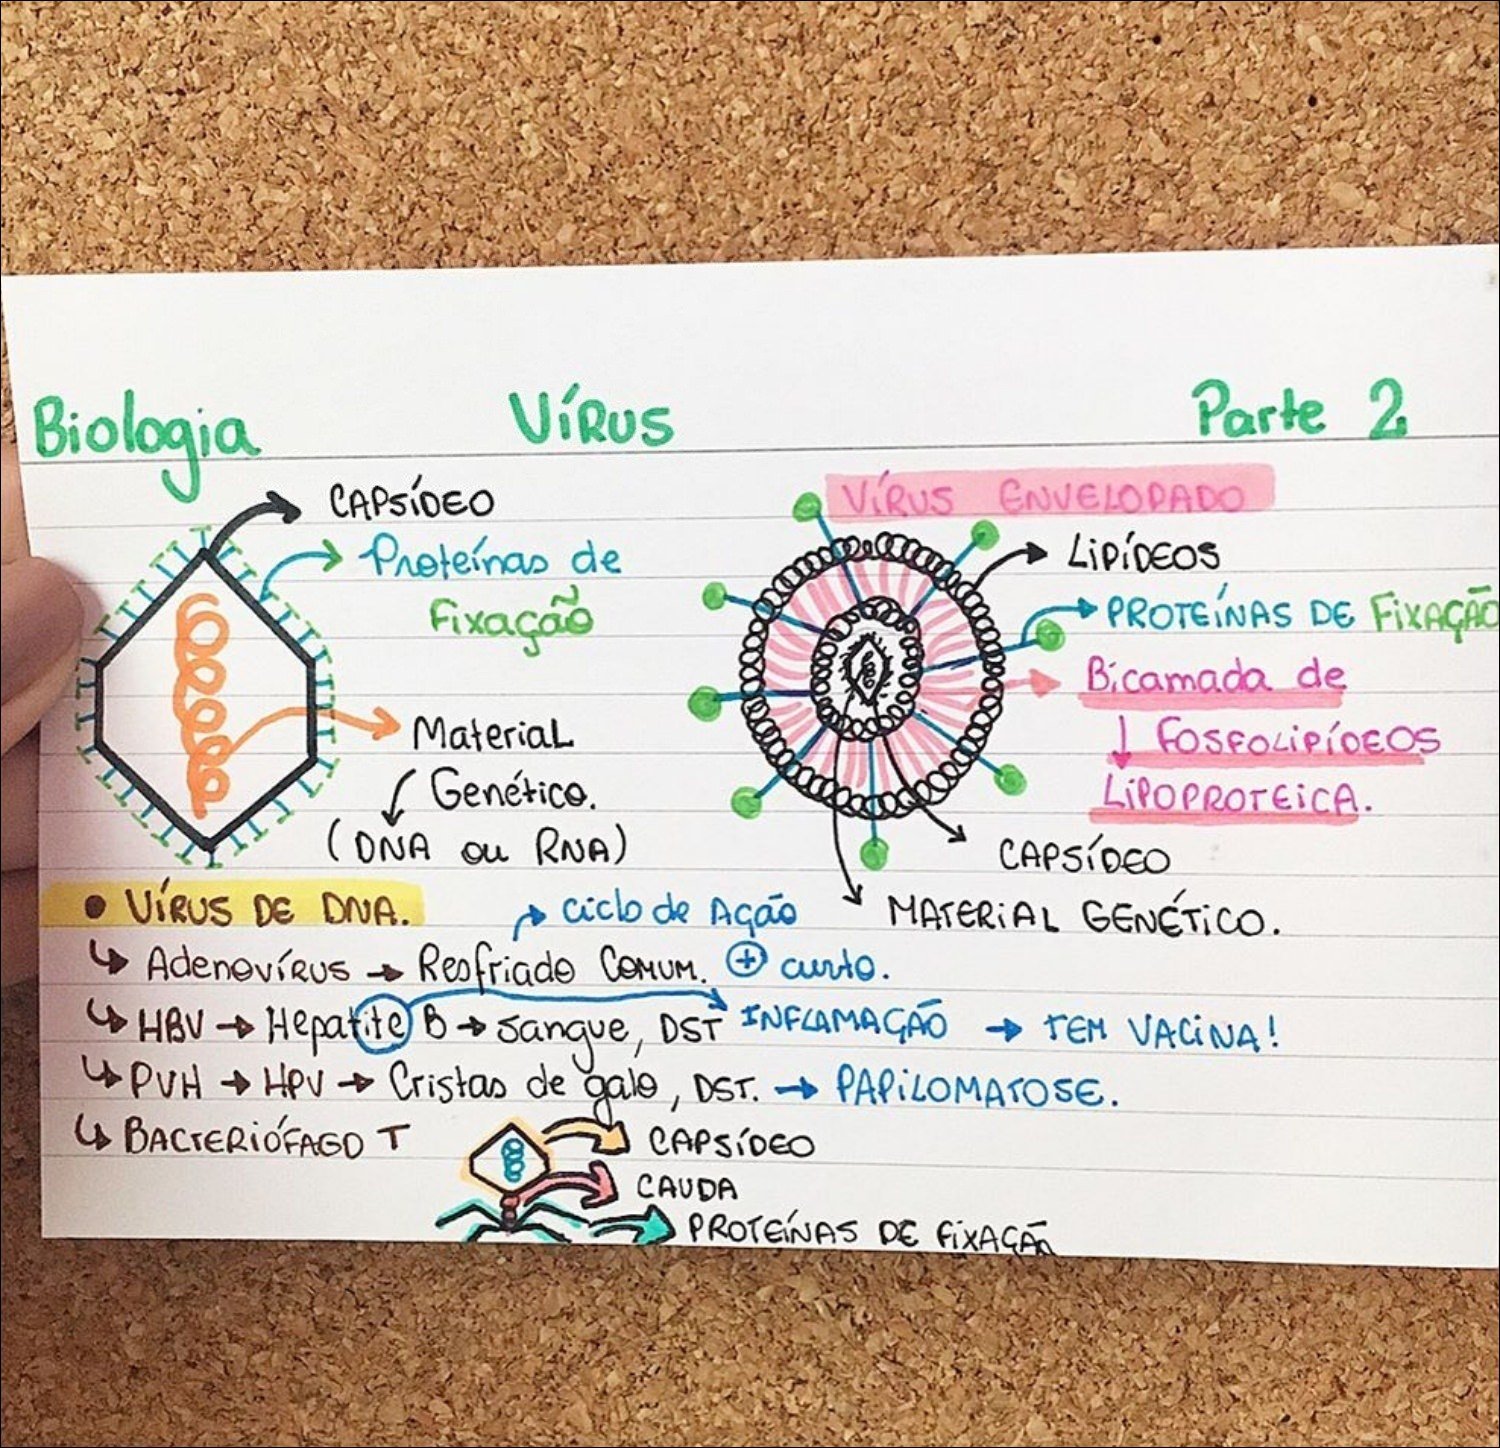 Biologia VÍRUS Parte 2
CAPSÍDEO
Proteínas de
fixação
Material
Genético.
(DNA ou RNA)
VÍRUS ENVELOPADO
LIPÍDEOS
PROTEÍNAS DE FIXAÇÃO
Bicamada de
↓ FOSFOLIPÍDEOS
LIPOPROTEICA.
CAPSÍDEO
MATERIAL GENÉTICO.
• VÍRUS DE DNA.
↳ Adenovírus → Resfriado COMUM. → ciclo de Ação ⊕ curto.
↳ HBV → Hepatite B → sangue, DST INFLAMAÇÃO → TEM VACINA!
↳ PVH → HPV → Cristas de galo, DST. → PAPILOMATOSE.
↳ BACTERIÓFAGO T
CAPSÍDEO
CAUDA
PROTEÍNAS DE FIXAÇÃO